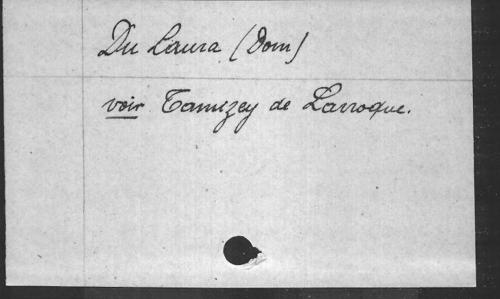 Du Laura (Dom)
voir Tamizey de Larroque.